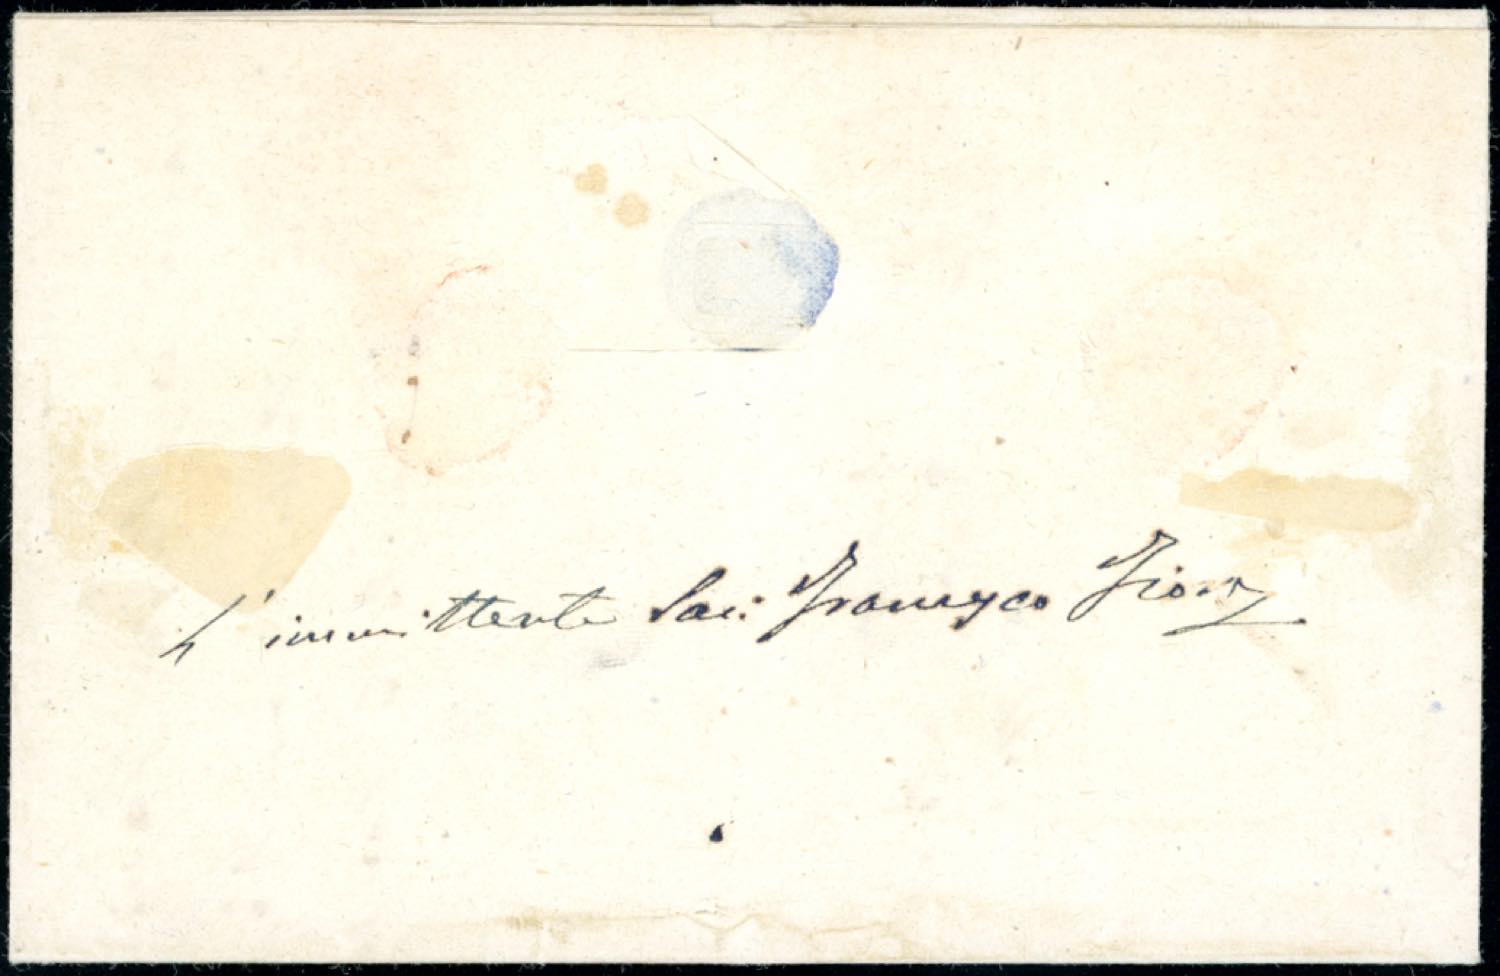 L'immittente Sac: Francesco Fiory